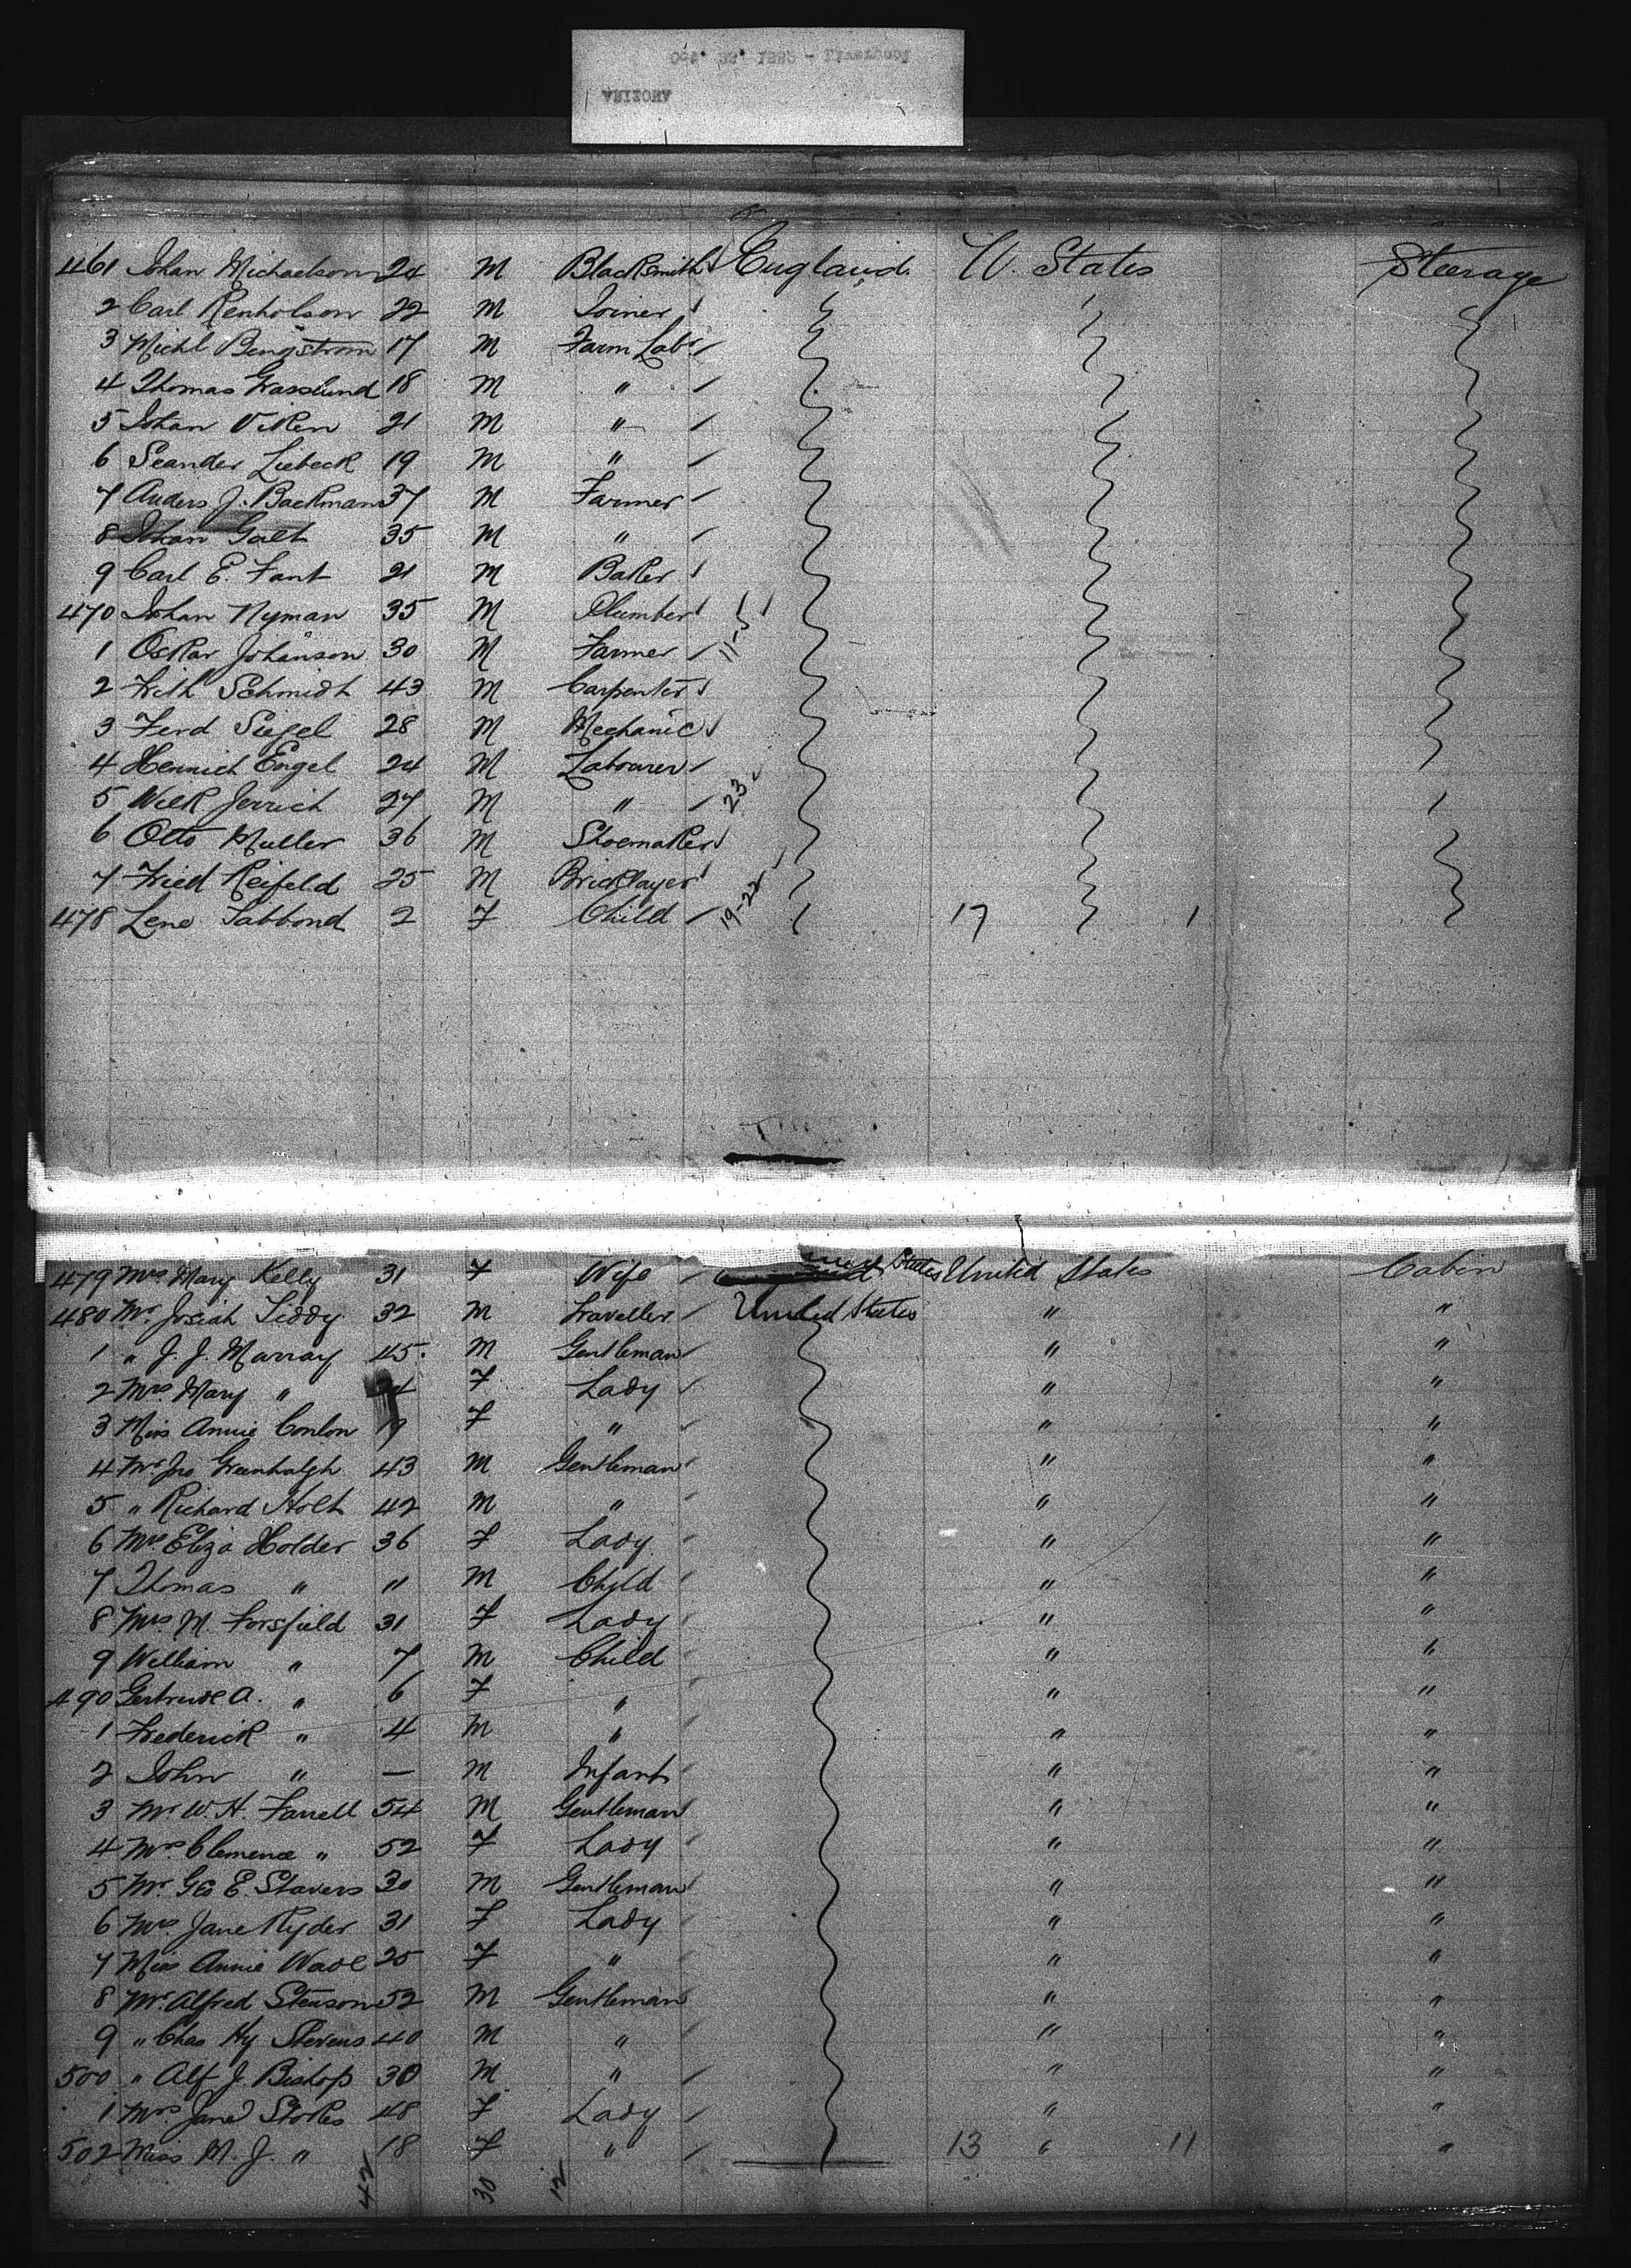 461 Johan Michaelson 24 M Blacksmith England U. States Steerage
2 Carl Renholson 22 M Joiner
3 Michl Bengstrom 17 M Farm Labr
4 Thomas Grasslund 18 M "
5 Johan Viken 21 M "
6 Seander Liebeck 19 M "
7 Anders J. Backman 37 M Farmer
8 Johan Galt 35 M "
9 Carl E. Fant 21 M Baker
470 Johan Nyman 35 M Plumber
1 Oskar Johanson 30 M Farmer 11-5
2 Frith Schmidt 43 M Carpenter
3 Ferd Siegel 28 M Mechanic
4 Hennich Engel 24 M Labourer
5 Welk Jerrich 27 M " 23
6 Otto Muller 36 M Shoemaker
7 Fried Reifeld 25 M Bricklayer
478 Lene Tabbond 2 F Child 19-22 17 1
479 Mrs Mary Kelly 31 F Wife States United States Cabin
480 Mr Josiah Liddy 32 M Traveller United States " "
1 " J. J. Murray 45 M Gentleman " "
2 Mrs Mary " 34 F Lady " "
3 Miss Annie Conlon 19 F " " "
4 Mr Jno Greenhalgh 43 M Gentleman " "
5 " Richard Holt 42 M " " "
6 Mrs Eliza Holder 36 F Lady " "
7 Thomas " " M Child " "
8 Mrs M. Forsfield 31 F Lady " "
9 William " 7 M Child " "
490 Gertrude A. " 6 F " " "
1 Frederick " 4 M " " "
2 John " — M Infant " "
3 Mr W. H. Farrell 54 M Gentleman " "
4 Mrs Clemence " 52 F Lady " "
5 Mr Geo E. Stavers 30 M Gentleman " "
6 Mrs Jane Ryder 31 F Lady " "
7 Miss Annie Wade 25 F " " "
8 Mr Alfred Stenson 52 M Gentleman " "
9 " Chas Hy Stevens 40 M " " "
500 " Alf J. Bishop 30 M " " "
1 Mrs Jane Stokes 48 F Lady " "
502 Miss M. J. " 18 F " 13 " 11 "
42 30 12